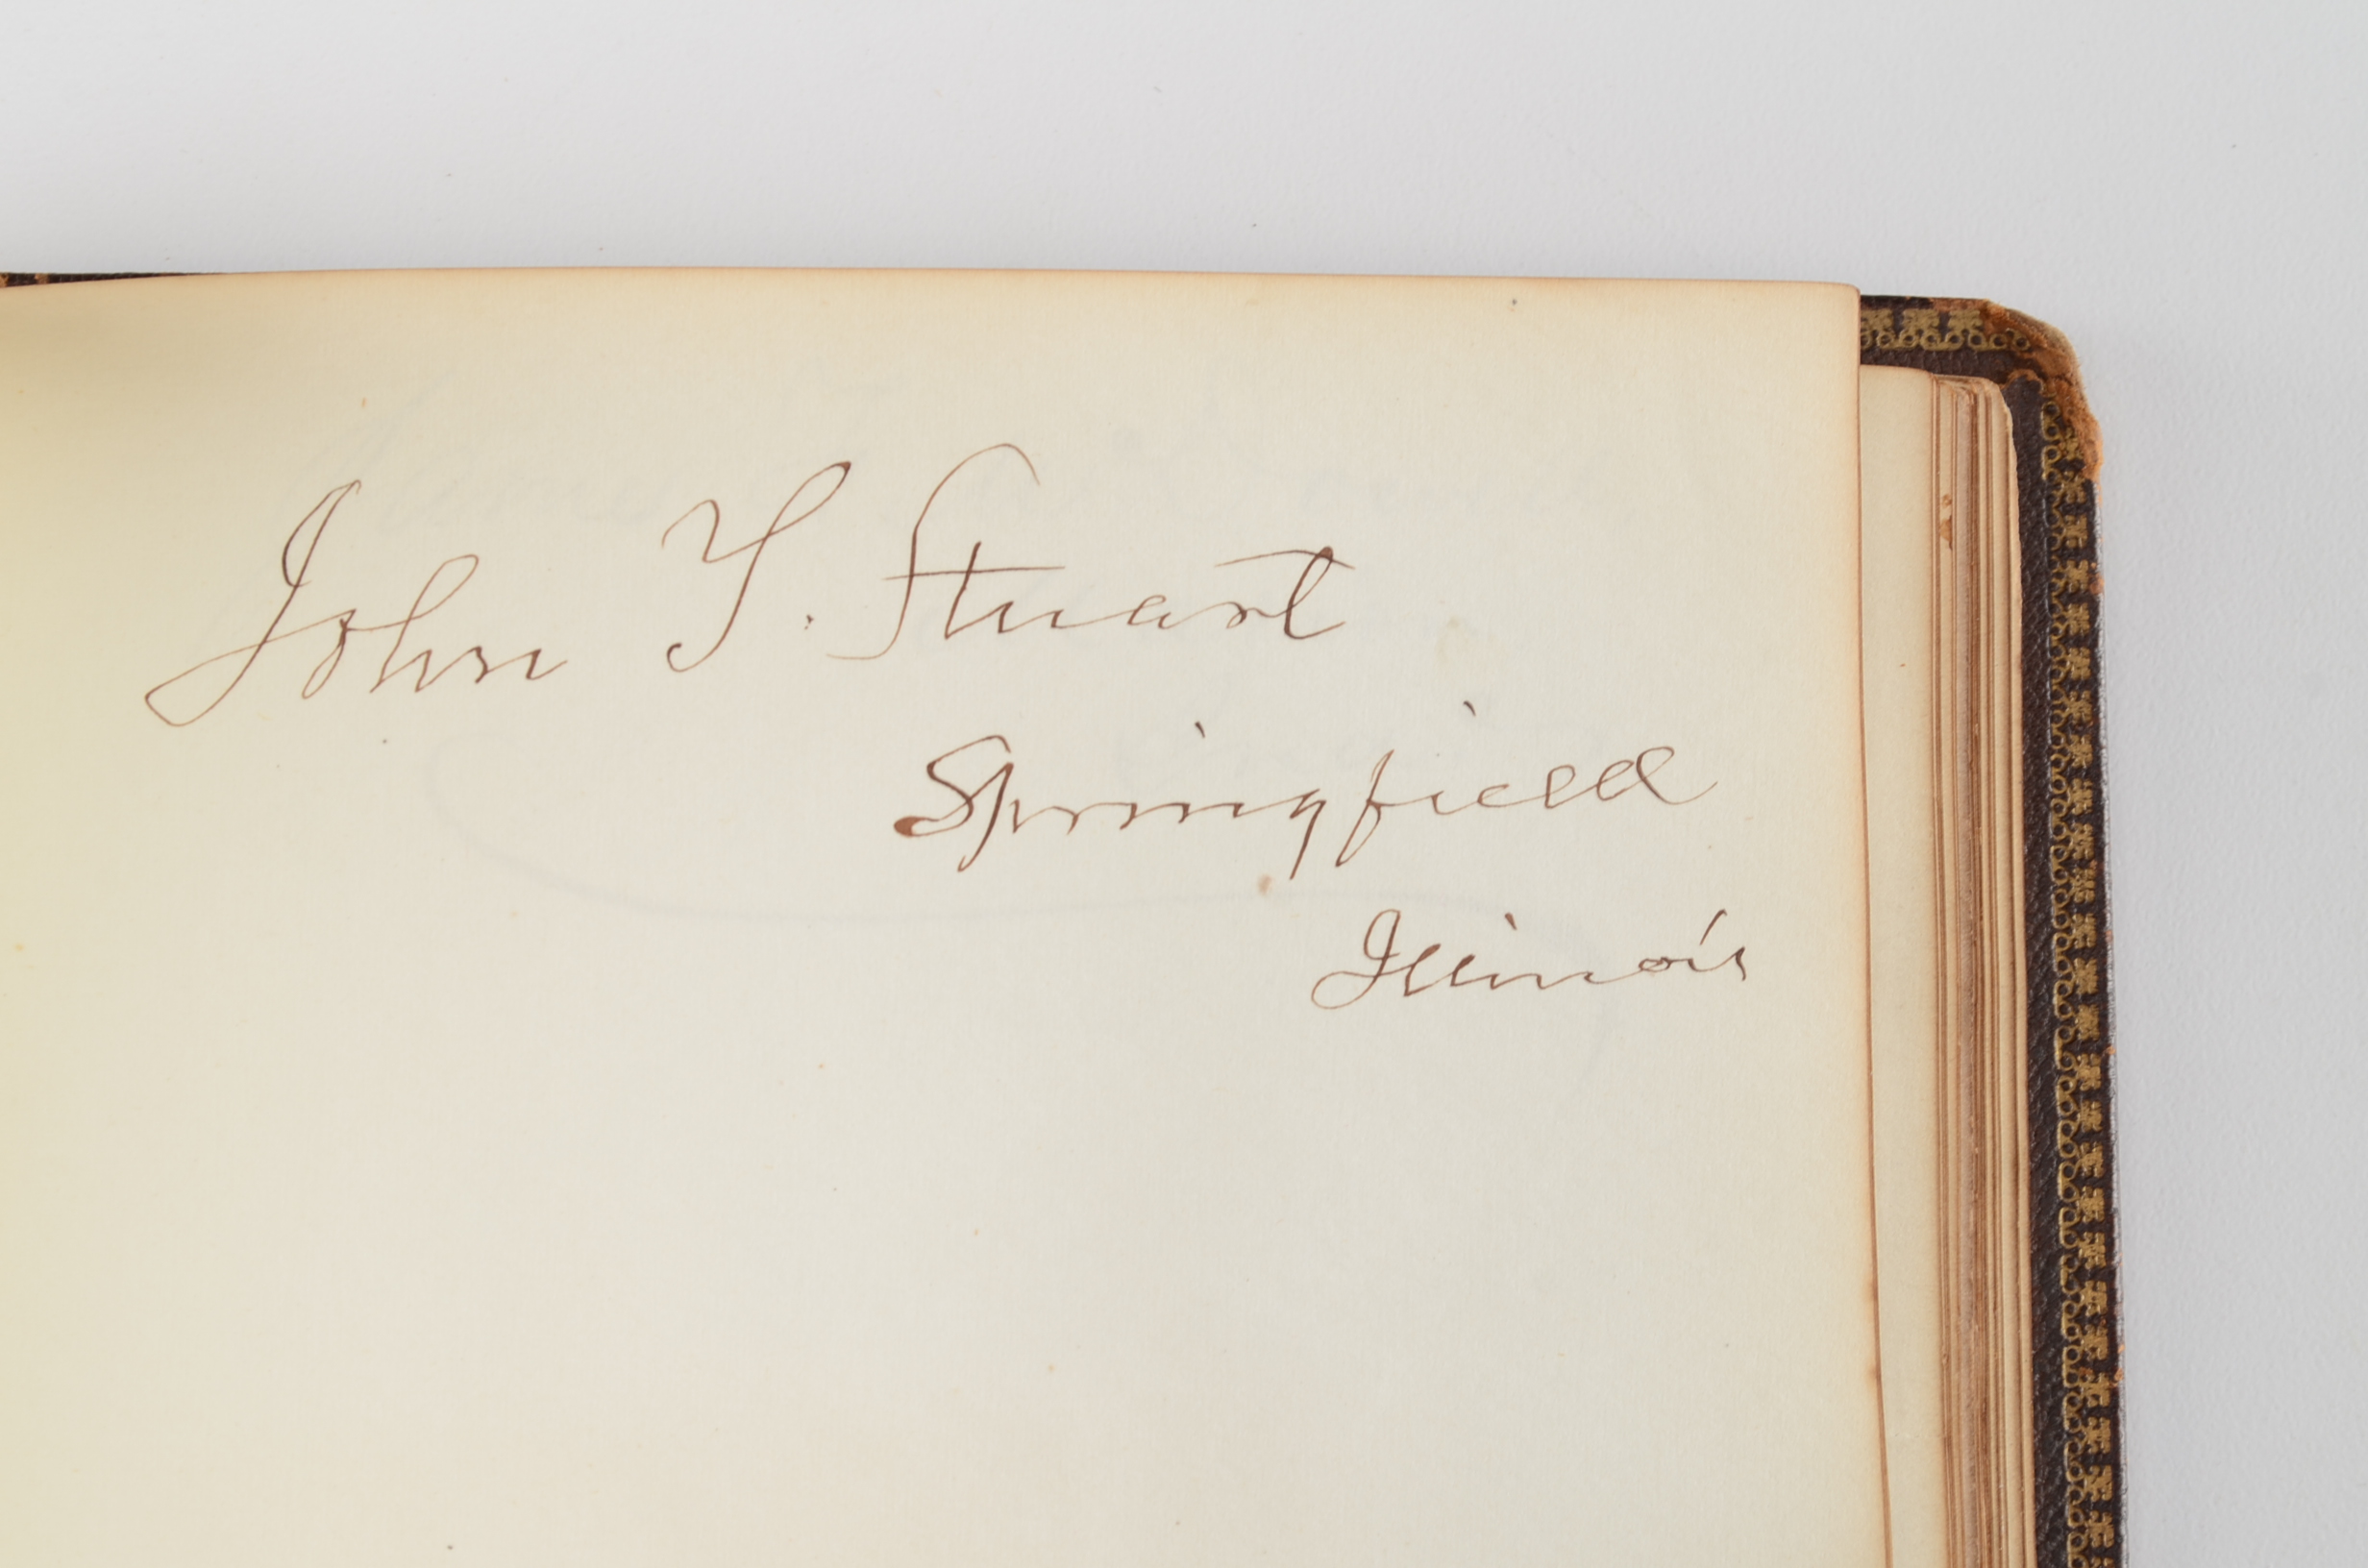 John T. Stuart
Springfield
Illinois